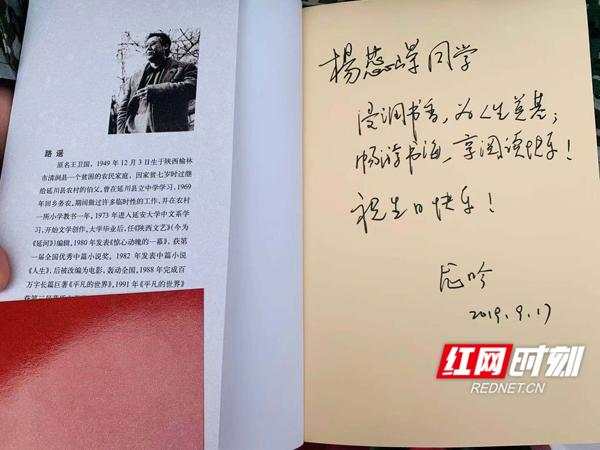 路遥
原名王卫国，1949 年 12 月 3 日生于陕西榆林
市清涧县一个贫困的农民家庭，因家贫七岁时过继
给延川县农村的伯父，曾在延川县立中学学习，1969
年回乡务农，期间做过许多临时性的工作，并在农村
一所小学教书一年。1973 年进入延安大学中文系学
习，开始文学创作。大学毕业后，任《陕西文艺》（今为
《延河》）编辑。1980 年发表《惊心动魄的一幕》，获第
一届全国优秀中篇小说奖。1982 年发表中篇小说
《人生》，后被改编为电影，轰动全国。1988 年完成百
万字长篇巨著《平凡的世界》，1991 年《平凡的世界》
同学
浸润书香，为人生奠基；
畅游书海，享阅读快乐！
祝生日快乐！
2019.9.17
红网时刻
REDNET.CN